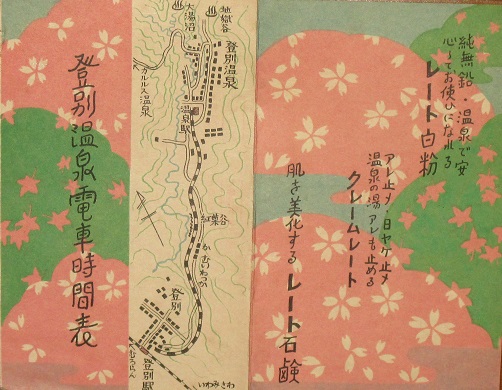 純無鉛・温泉で安
心してお使ひになれる
レート白粉
アレ止メ・日ヤケ止メ
温泉の湯アレも止める
クレームレート
肌を美化する レート石鹸
地獄谷
大湯沼
登別温泉
カルルス温泉
温泉駅
紅葉谷
登別
登別駅
いわみざわ
登別温泉電車時間表